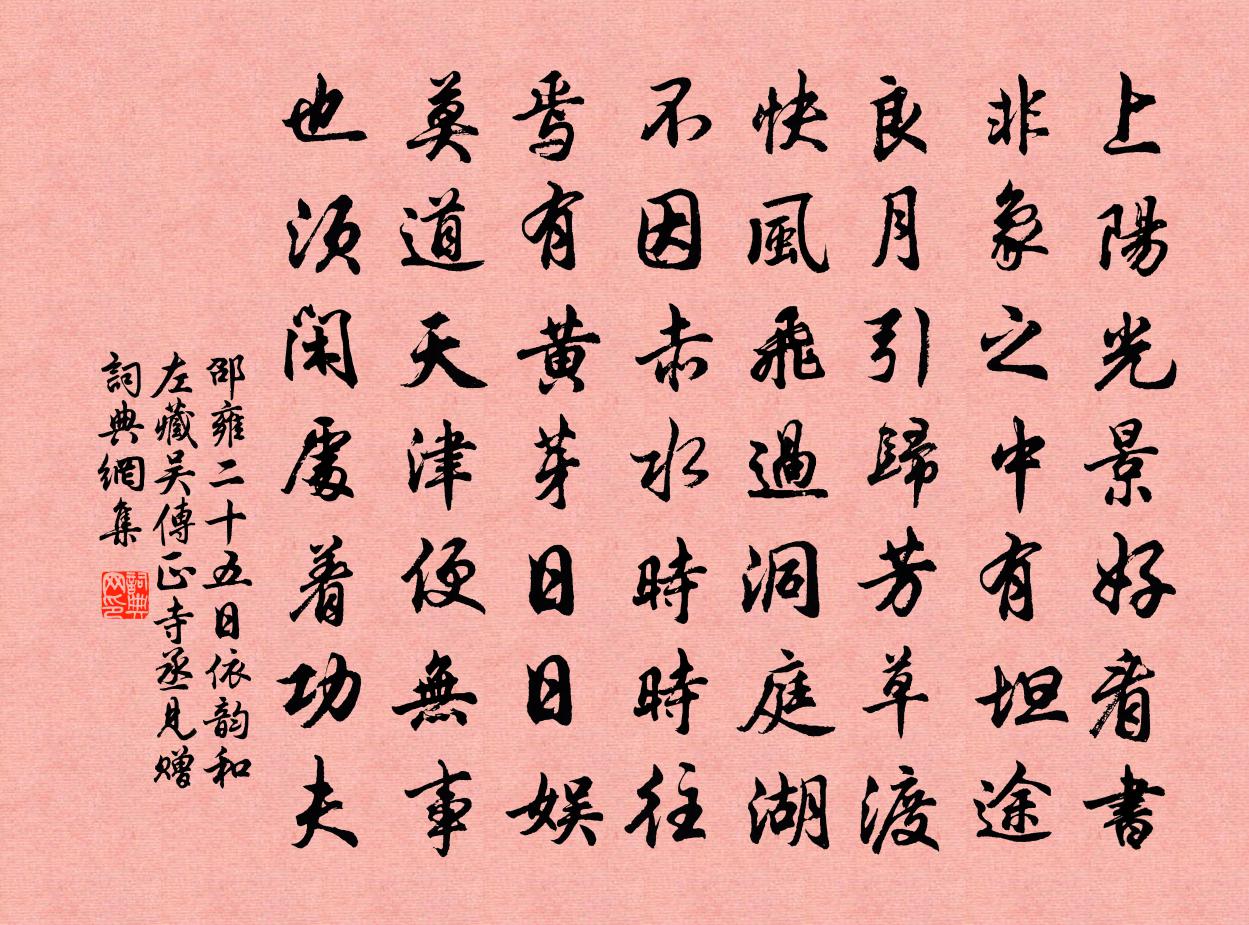 上陽光景好看書
非象之中有坦途
良月引歸芳草渡
快風飛過洞庭湖
不因赤水時時往
焉有黄芽日日娛
莫道天津便無事
也須閑處着功夫
邵雍二十五日依韵和
左藏吴傳正寺丞見赠
詞典網集
詞典网印